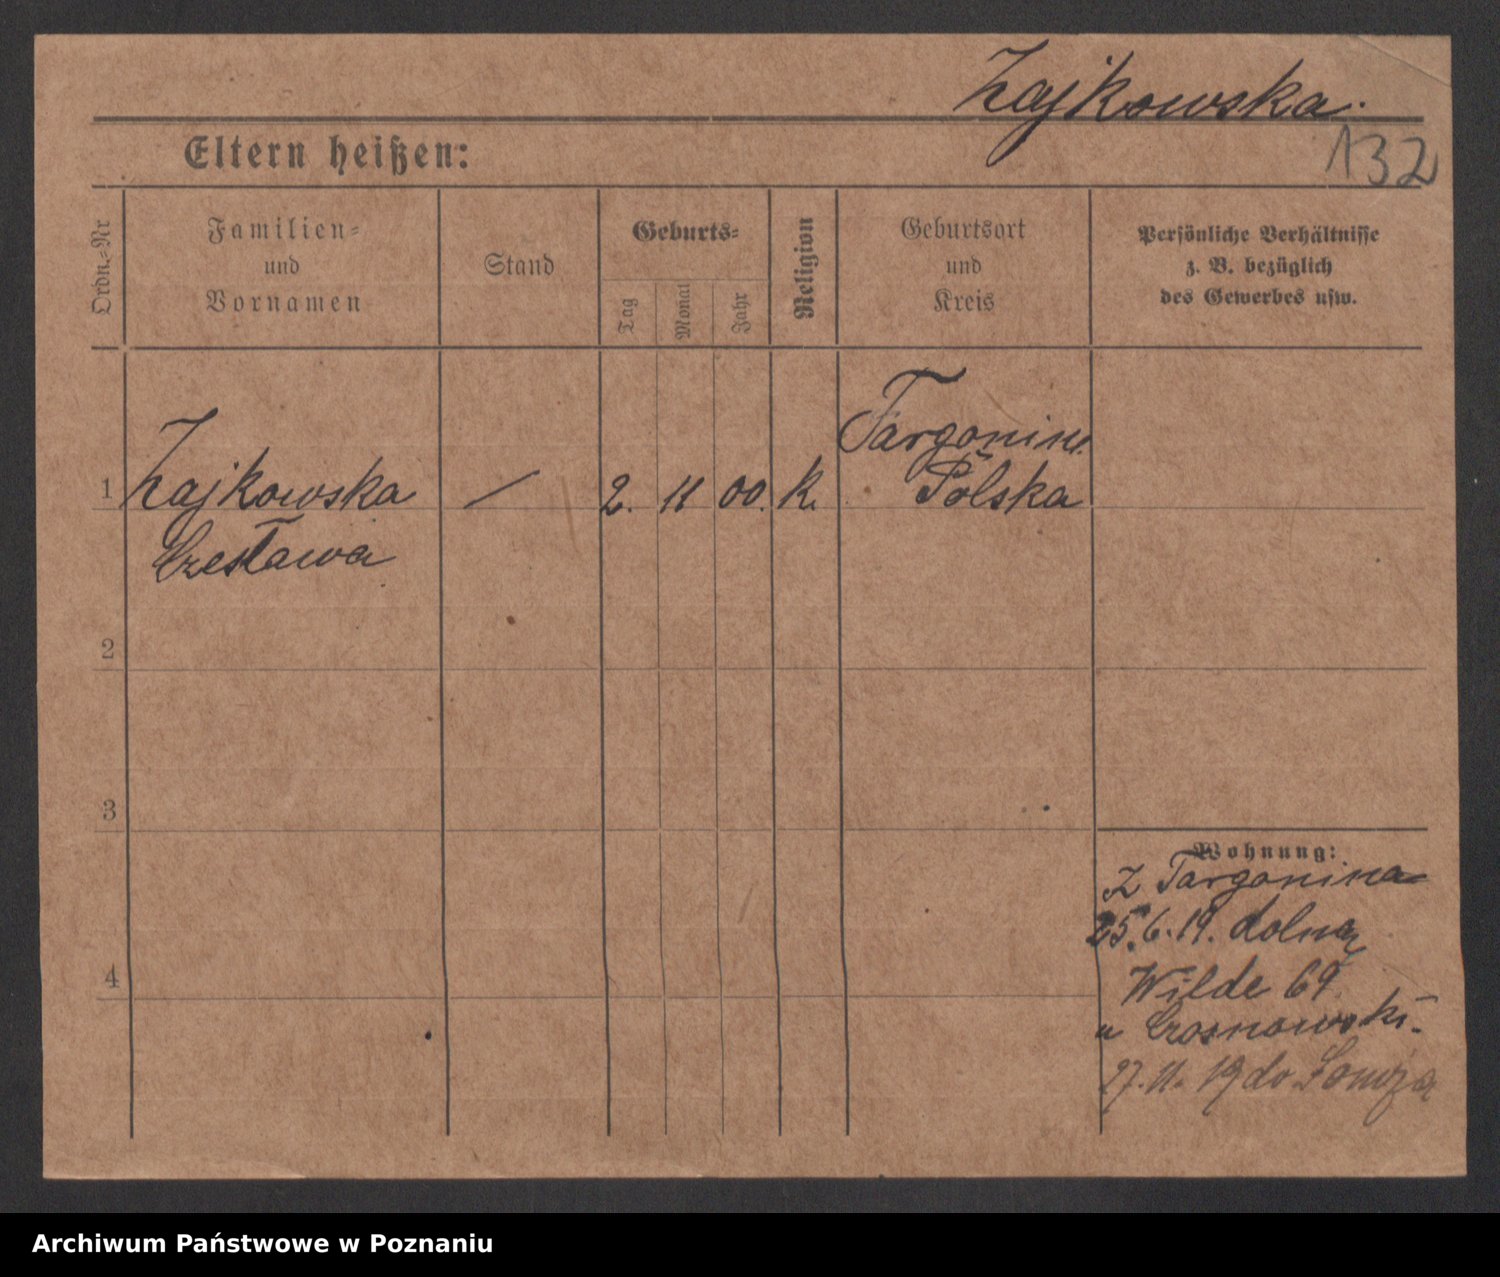 Zajkowska.
132
Eltern heißen:
Ordn.-Nr
Familien-
und
Vornamen
Stand
Geburts-
Tag
Monat
Jahr
Religion
Geburtsort
und
Kreis
Persönliche Verhältnisse
z. B. bezüglich
des Gewerbes usw.
1 Zajkowska / 2. 11 00. K. Targonin
Polska
Czesława
2
3
4
Wohnung:
Z Targonina
25.6.19. dolna
Wilde 69
u Crosnowski.
27.11.19 do Łomża
Archiwum Państwowe w Poznaniu